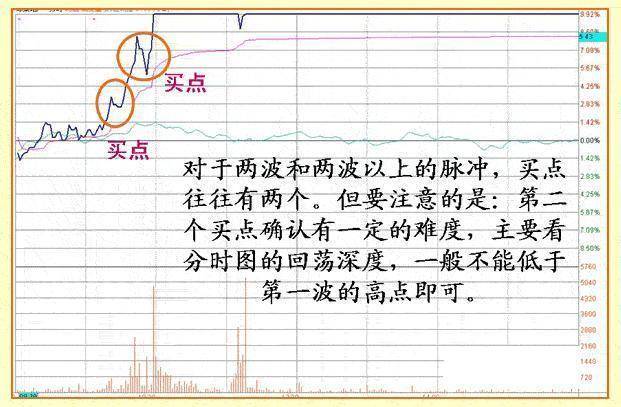 9.92%
5.43
7.08%
5.67%
买点
4.25%
2.83%
1.42%
买点
0.00%
对于两波和两波以上的脉冲，买点
1.42%
往往有两个。但要注意的是：第二
2.83%
4.25%
个买点确认有一定的难度，主要看
5.67%
7.09%
分时图的回荡深度，一般不能低于
8.50%
5760
第一波的高点即可。
5040
4320
3600
2880
2160
1440
720